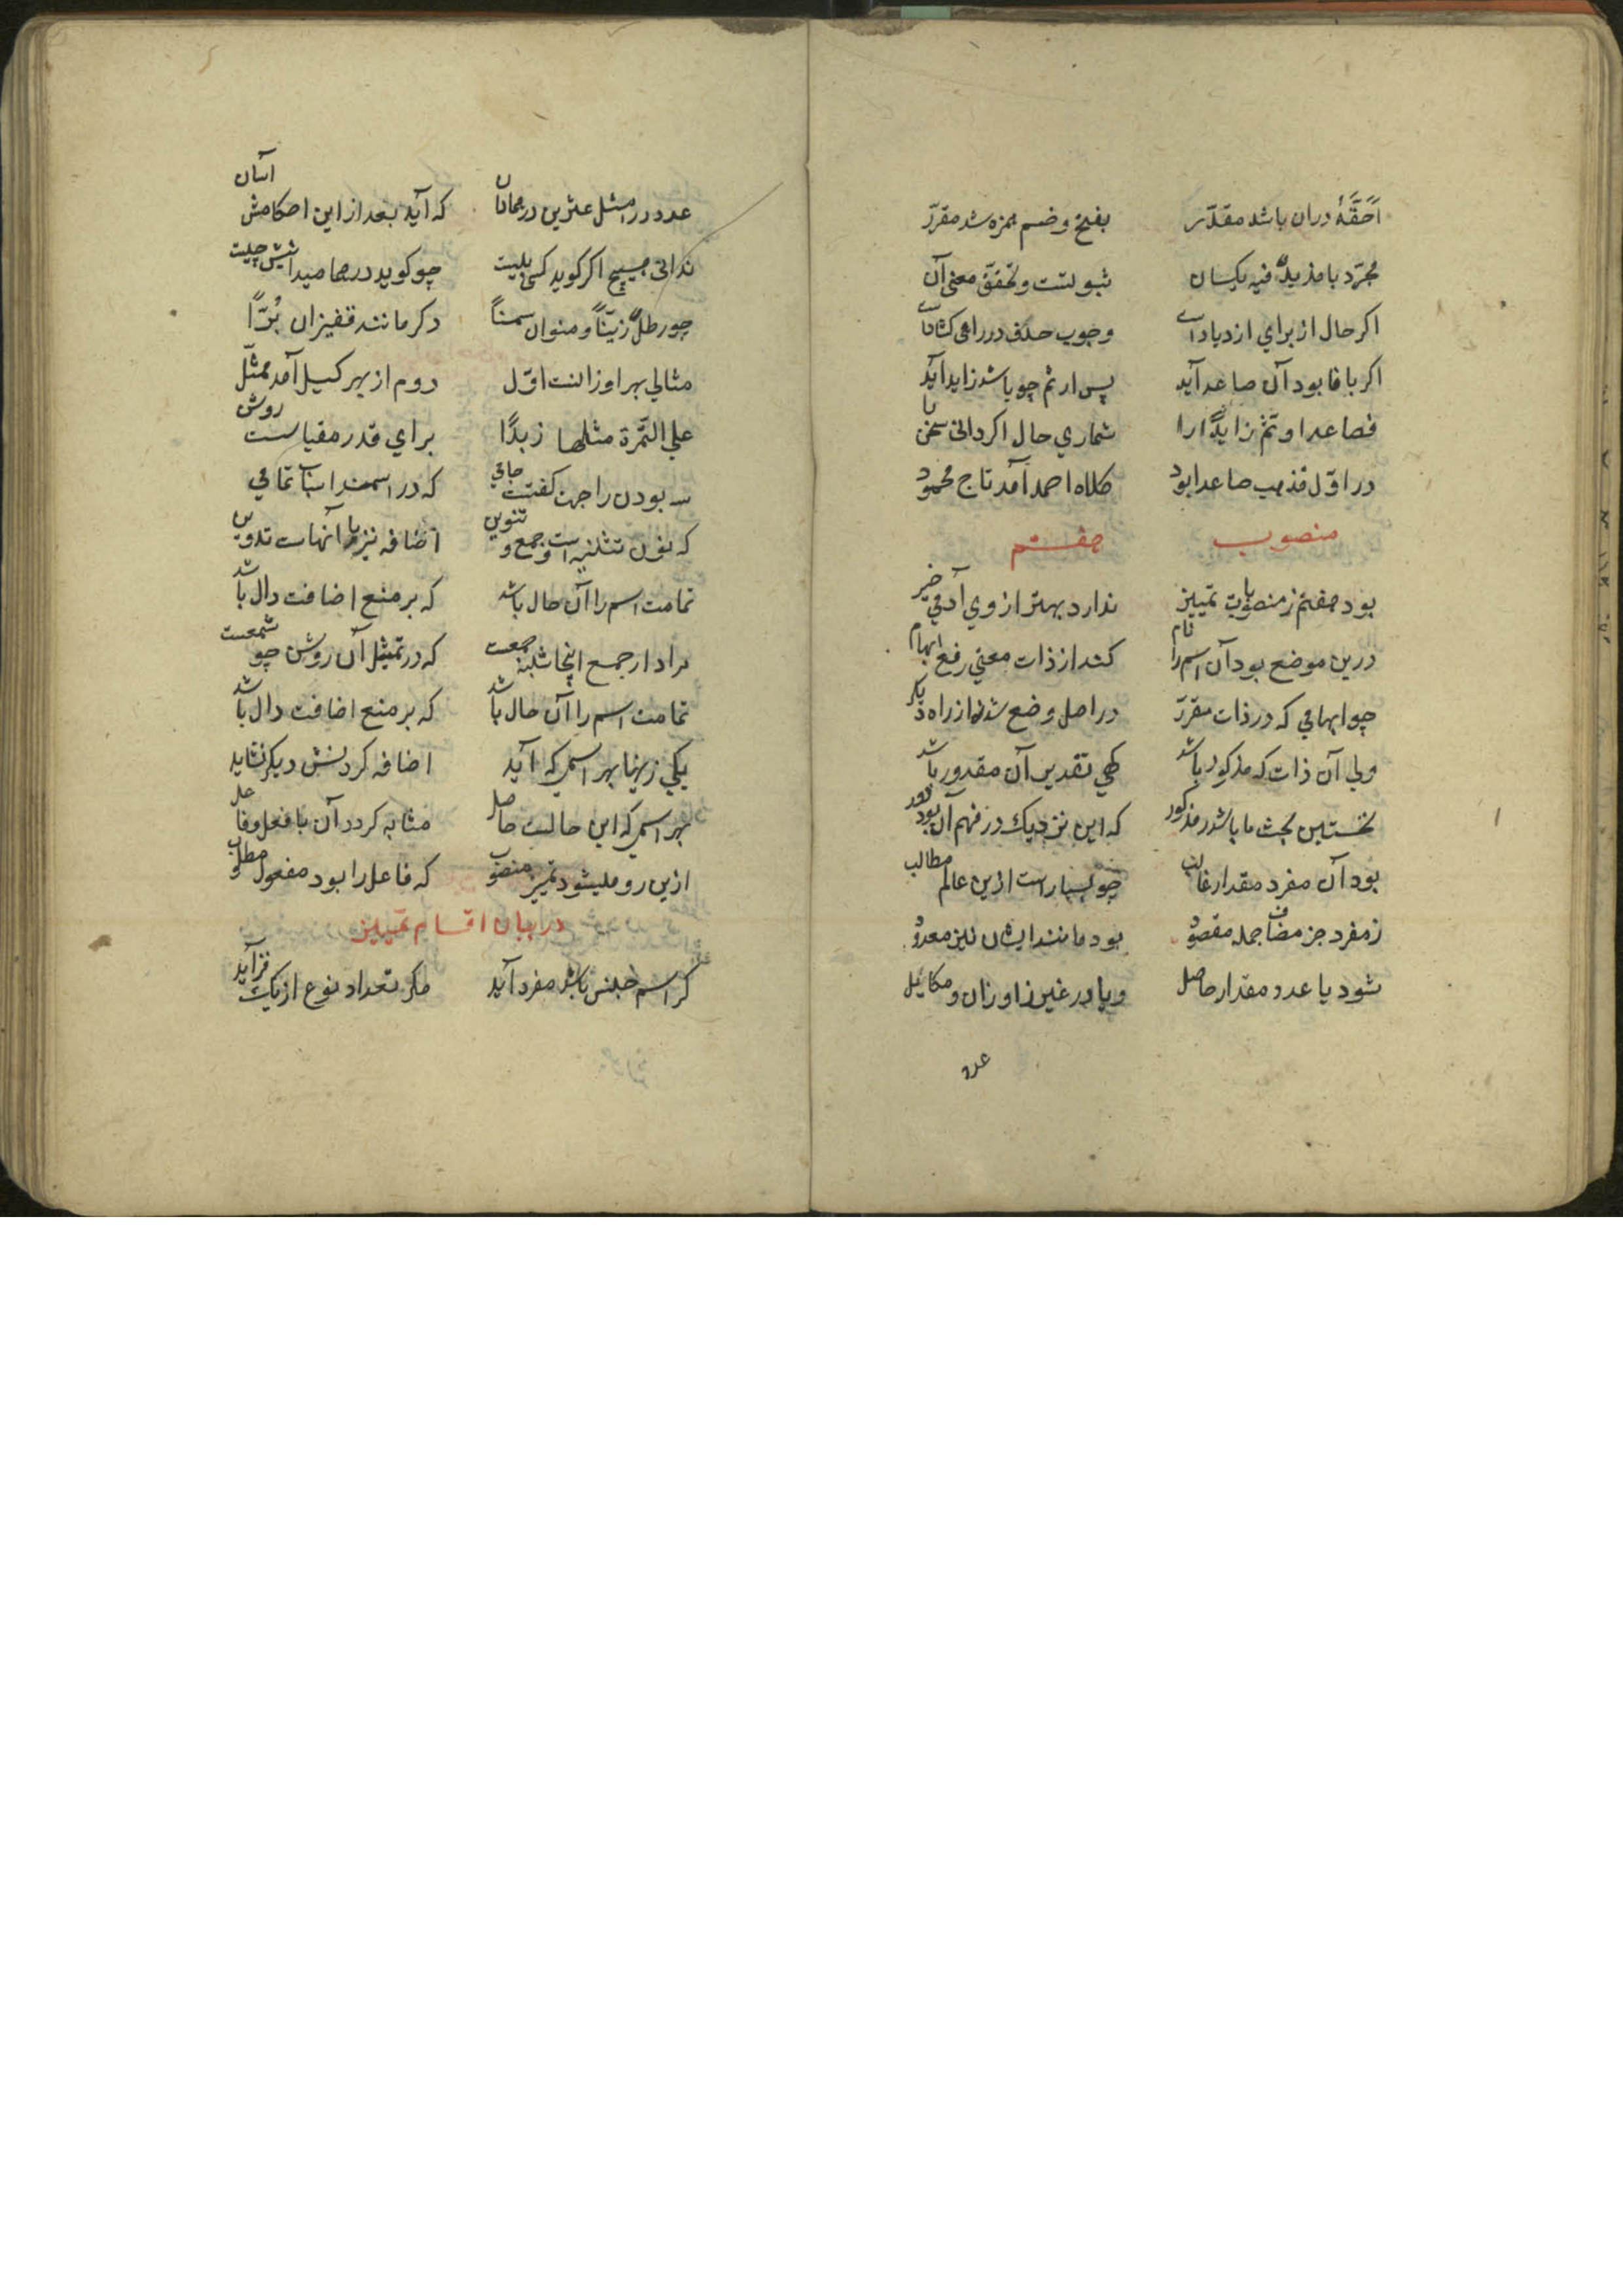 اَحَقَّهُ دران باشد مقدّر بفتح و ضم همزه شد مقرّر
مجرّد با مزیدٌ فیه یکسان ثبوتست و تحقق معنی آن
اکر حال از برای ازدیاد است وجوب حذف در راهی کشادست
اکر با فا بود آن صاعد آید پس ار ثم چو باشد زاید آید
فصاعدا و ثمّ زایدًا را شماری حال اکر دانی سخن را
در اوّل فذهب صاعدا بود کلاه احمد آمد تاج محمود
منصوب هفتم
بود هفتم ز منصوبات تمییز ندارد بهتر از وی آدمی خیر
درین موضع بود آن اسم را نام کند از ذات معنی رفع ابهام
چو ابهامی که در ذات مقرّر در اصل وضع شد نه از راه دیکر
ولی آن ذات که مذکور باشد کهی تقدیر آن مقدور باشد
نخستین بحث ما باشد ز مذکور که این نزدیک در فهم آن بود دور
بود آن مفرد مقدار غالب چو بسیار است ازین عالم مطالب
ز مفرد جز مضاف جمله مقصود بود مانند ایشان نیز معدود
شود یا عدد مقدار حاصل و یا در غیر ز اوزان و مکاییل
عدد
عدد را مثل عشرین درهما دان که آید بعد از این احکامش آسان
ندانی هیچ اکر کوید کسی بیست چو کوید درهما میدانیش چیست
چو رطلٌ زیتًا و منوان سمنًا دکر مانند قفیزان بُرًّا
مثالی بهر اوزانست اوّل دوم از بهر کیل آمد ممثّل
علی التّمرة مثلها زبدًا برای قدر مقیاست روش
بودن را جهت کفتست جامی که در اسمند اسباب تمامی
که نون تثنیه است و جمع و تنوین اضافه نیز با آنهاست تدوین
تمامت اسم را آن حال باشد که بر منع اضافت دال باشد
مراد ار جمع اینجا شبه جمعست که در تمثیل آن روشن چو شمعست
تمامت اسم را آن حال باشد که بر منع اضافت دال باشد
یکی زینها بهر اسمی که آید اضافه کردنش دیکر نشاید
بهر اسمی که این حالت حاصل مشابه کردد آن با فعل و فاعل
ازین رو میشود تمیز منصوب که فاعل را بود مفعول مطلوب
در بیان اقسام تمییز
کر اسم جنس باشد مفرد آید مکر تعداد نوع از یک فزآید